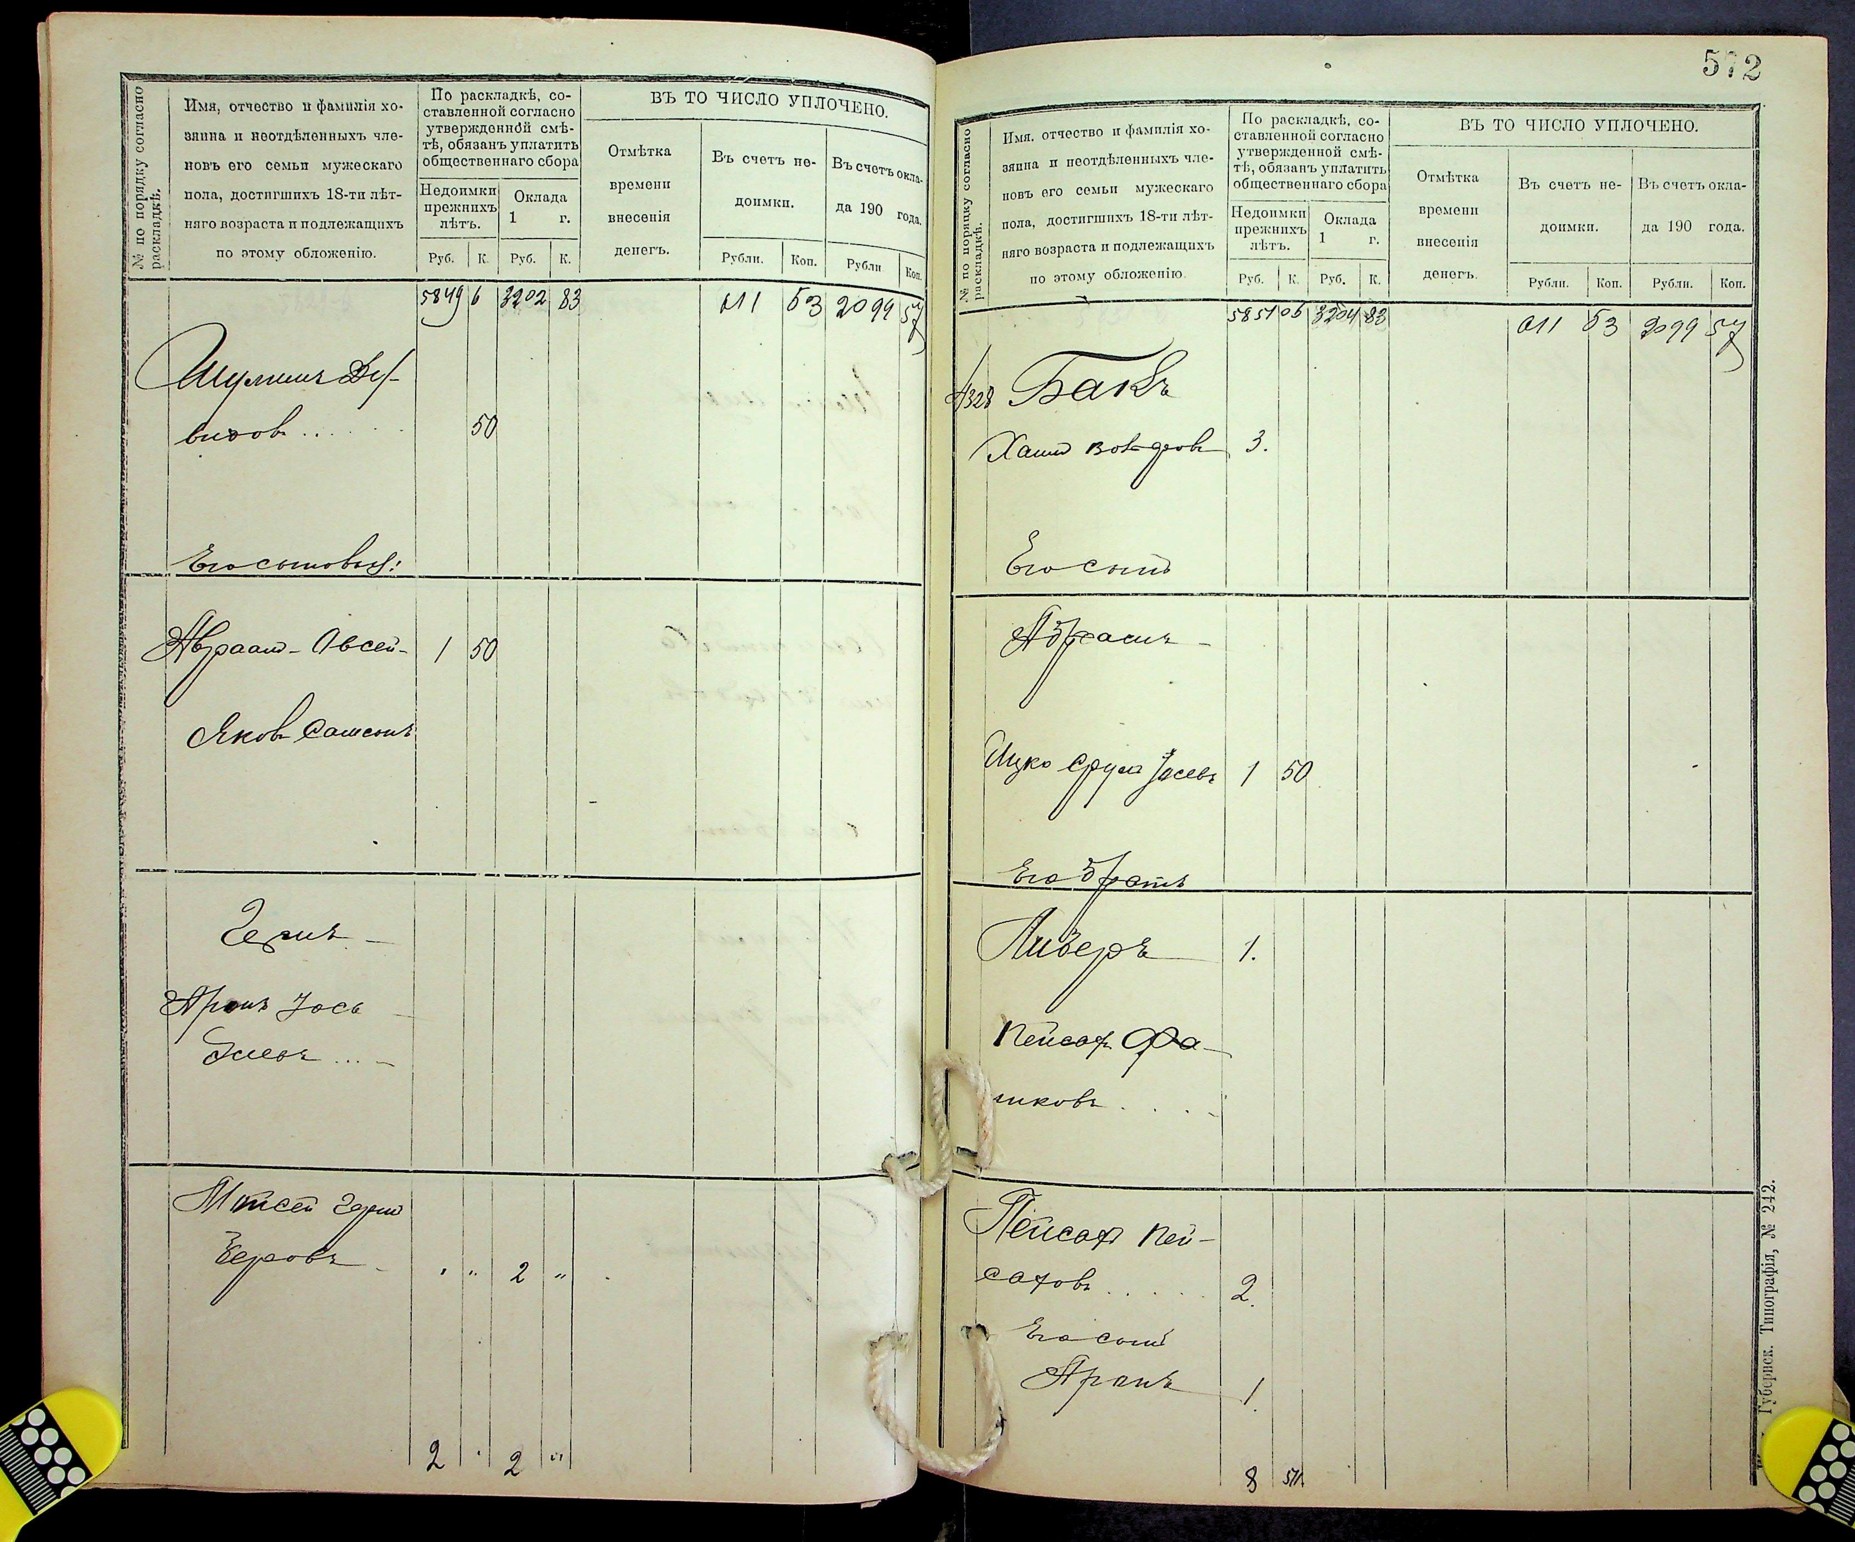 № по порядку согласно раскладкѣ.
Имя, отчество и фамилія хо-
зяина и неотдѣленныхъ чле-
новъ его семьи мужескаго
пола, достигшихъ 18-ти лѣт-
няго возраста и подлежащихъ
по этому обложенію.
По раскладкѣ, со-
ставленной согласно
утвержденной смѣ-
тѣ, обязанъ уплатить
общественнаго сбора
Недоимки прежнихъ лѣтъ.
Оклада 1 г.
Руб. К. Руб. К.
ВЪ ТО ЧИСЛО УПЛОЧЕНО.
Отмѣтка
времени
внесенія
денегъ.
Въ счетъ не-
доимки.
Рубли. Коп.
Въ счетъ окла-
да 190 года.
Рубли Коп.
5849 6 3202 83 611 53 2099 57
Шулимъ Да-
видов . . . . . 50
Его сыновья:
Абраам-Овсей- 1 50
Яков Самсонъ
Герш -
Аронъ Іось
Берков -
" " 2 "
2 " 2 "
572
№ по порядку согласно раскладкѣ.
Имя, отчество и фамилія хо-
зяина и неотдѣленныхъ чле-
новъ его семьи мужескаго
пола, достигшихъ 18-ти лѣт-
няго возраста и подлежащихъ
по этому обложенію.
По раскладкѣ, со-
ставленной согласно
утвержденной смѣ-
тѣ, обязанъ уплатить
общественнаго сбора
Недоимки прежнихъ лѣтъ.
Оклада 1 г.
Руб. К. Руб. К.
ВЪ ТО ЧИСЛО УПЛОЧЕНО.
Отмѣтка
времени
внесенія
денегъ.
Въ счетъ не-
доимки.
Рубли. Коп.
Въ счетъ окла-
да 190 года.
Рубли. Коп.
5851 06 3204 83 611 53 2099 57
1328 Бакъ
Хаим 3.
Его сынъ
Абрамъ -
Ицко Сруль Іосевъ 1 50
Его братъ
Либеръ 1.
Пейсах Фа-
Пейсах Пей-
сахов . . . . . 2.
Его сынъ
Аронъ 1.
8 50
Губернск. Типографія, № 242.